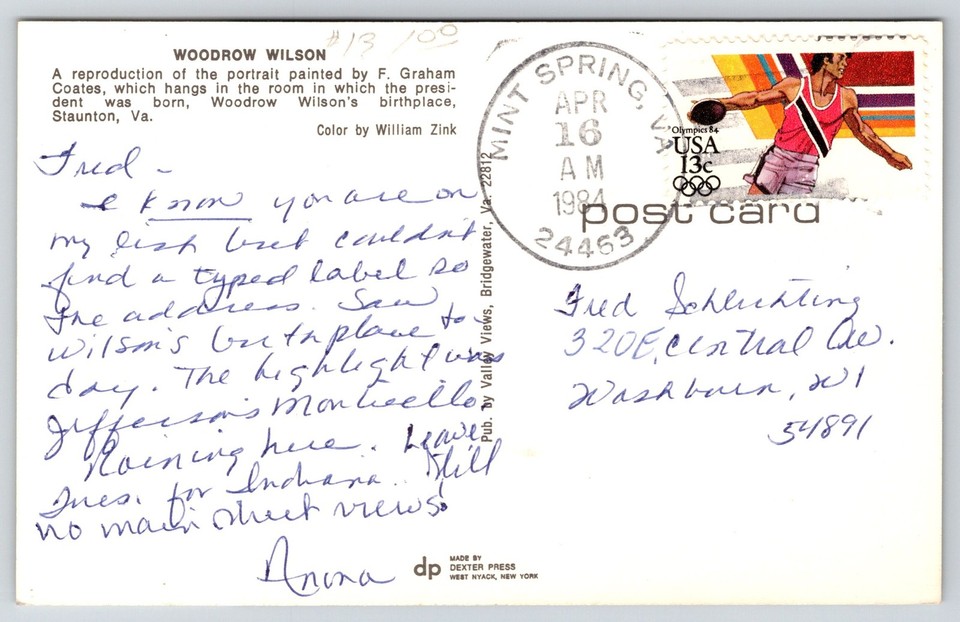 #13 1.00
WOODROW WILSON
A reproduction of the portrait painted by F. Graham
Coates, which hangs in the room in which the presi-
dent was born, Woodrow Wilson's birthplace,
Staunton, Va.
Color by William Zink
Fred -
I know you are on
my list but couldn't
find a typed label so
the address. Saw
Wilson's birthplace to-
day. The highlight was
Jefferson's Monticello.
Raining here. Leave
Tues. for Indiana. Still
no main street views!
Anona
Pub. by Valley Views, Bridgewater, Va. 22812
dp
MADE BY
DEXTER PRESS
WEST NYACK, NEW YORK
MINT SPRING, VA
APR
16
AM
1984
24463
Olympics 84
USA
13c
post card
Fred Schlichting
320 E. Central Ave.
Washburn, WI
54891